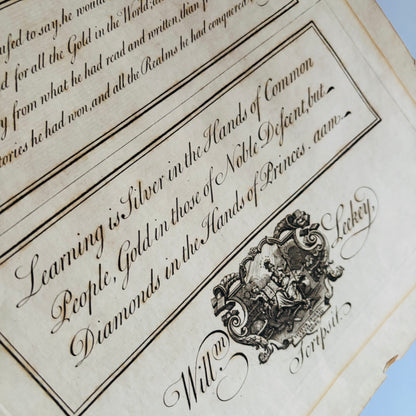 fused to say, he would
d for all the Gold in the World;
y from what he had read and written, than f
tories he had won, and all the Realms he had conquered.
Learning is Silver in the Hands of Common
People, Gold in those of Noble Descent, but
Diamonds in the Hands of Princes. aam
Willm. Leekey,
Scripsit.